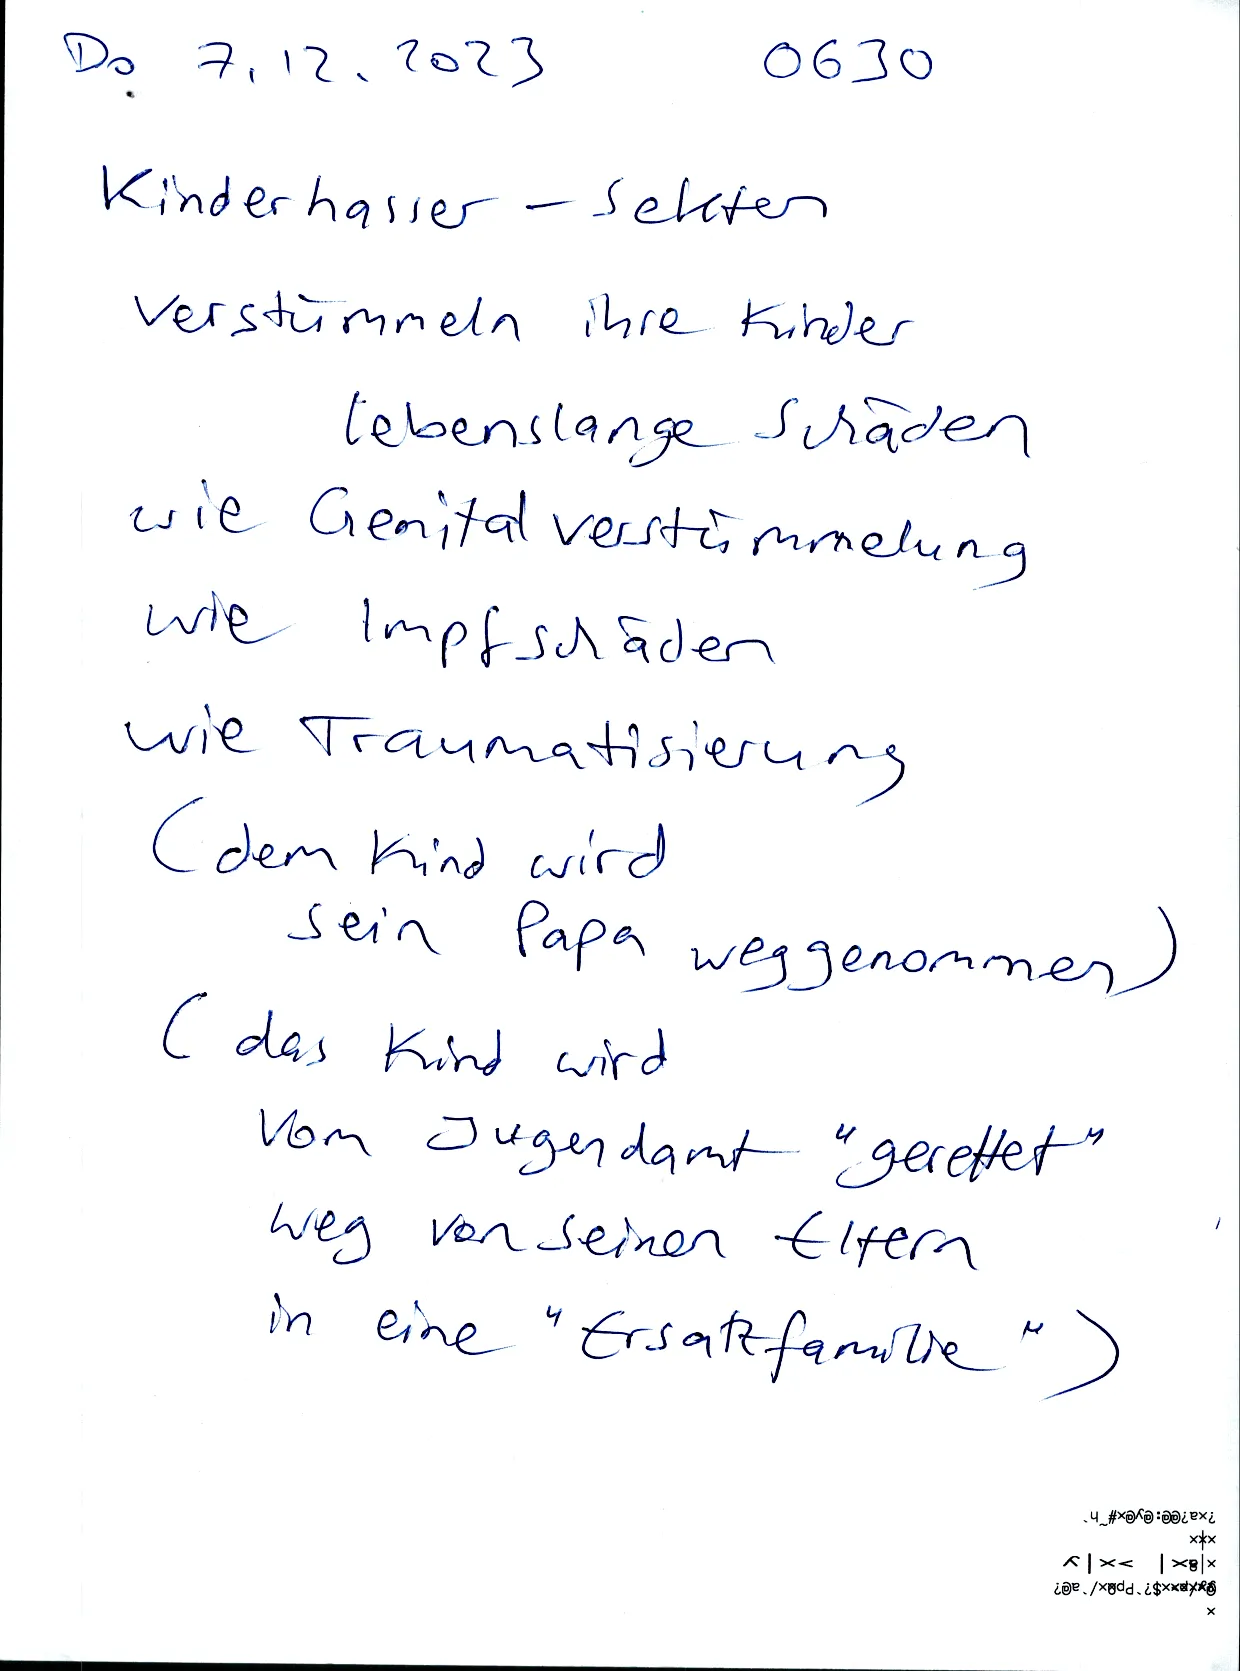 Do 7.12.2023 0630
Kinderhasser - Sekten
verstümmeln ihre Kinder
lebenslange Schäden
wie Genitalverstümmelung
wie Impfschäden
wie Traumatisierung
(dem Kind wird
sein Papa weggenommen)
(das Kind wird
vom Jugendamt "gerettet"
weg von seinen Eltern
in eine "Ersatzfamilie")